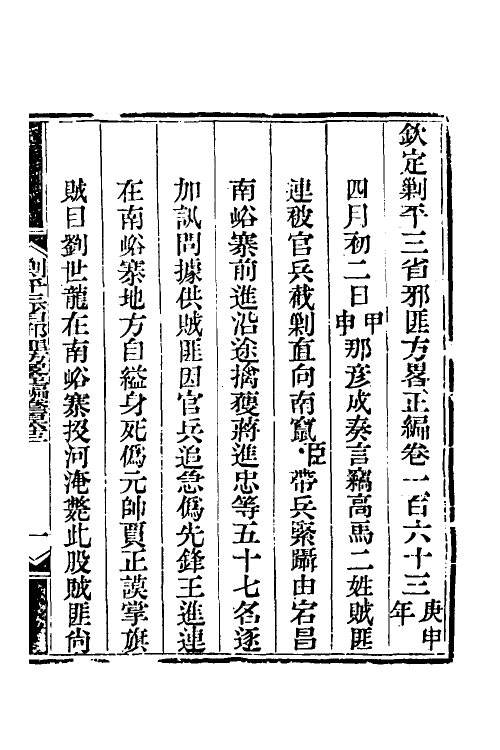 欽定剿平三省邪匪方畧正編卷一百六十三庚申年
四月初二日甲申那彥成奏言竊高馬二姓賊匪
連被官兵截剿直向南竄臣帶兵緊躡由宕昌
南峪寨前進沿途擒獲蔣進忠等五十七名逐
加訊問據供賊匪因官兵追急偽先鋒王進連
在南峪寨地方自縊身死偽元帥賈正謨掌旗
賊目劉世龍在南峪寨投河淹斃此股賊匪尙
一